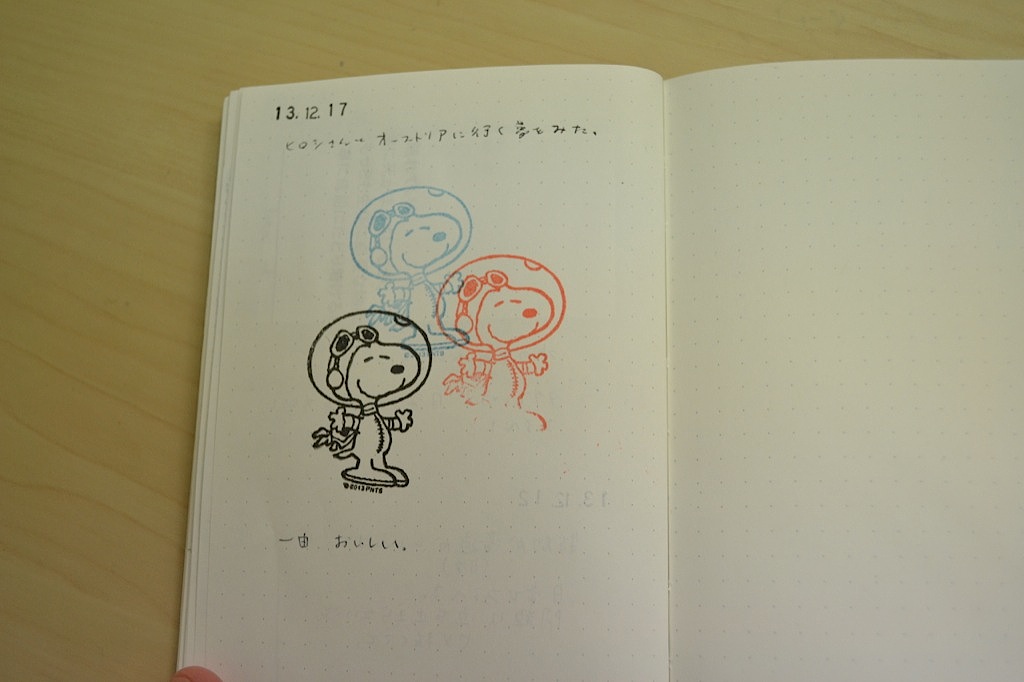 13.12.17
ヒロシさんと オーストリアに行く夢をみた。
©2013 PNTS
©2013 PNTS
一由 おいしい。
13.12.12